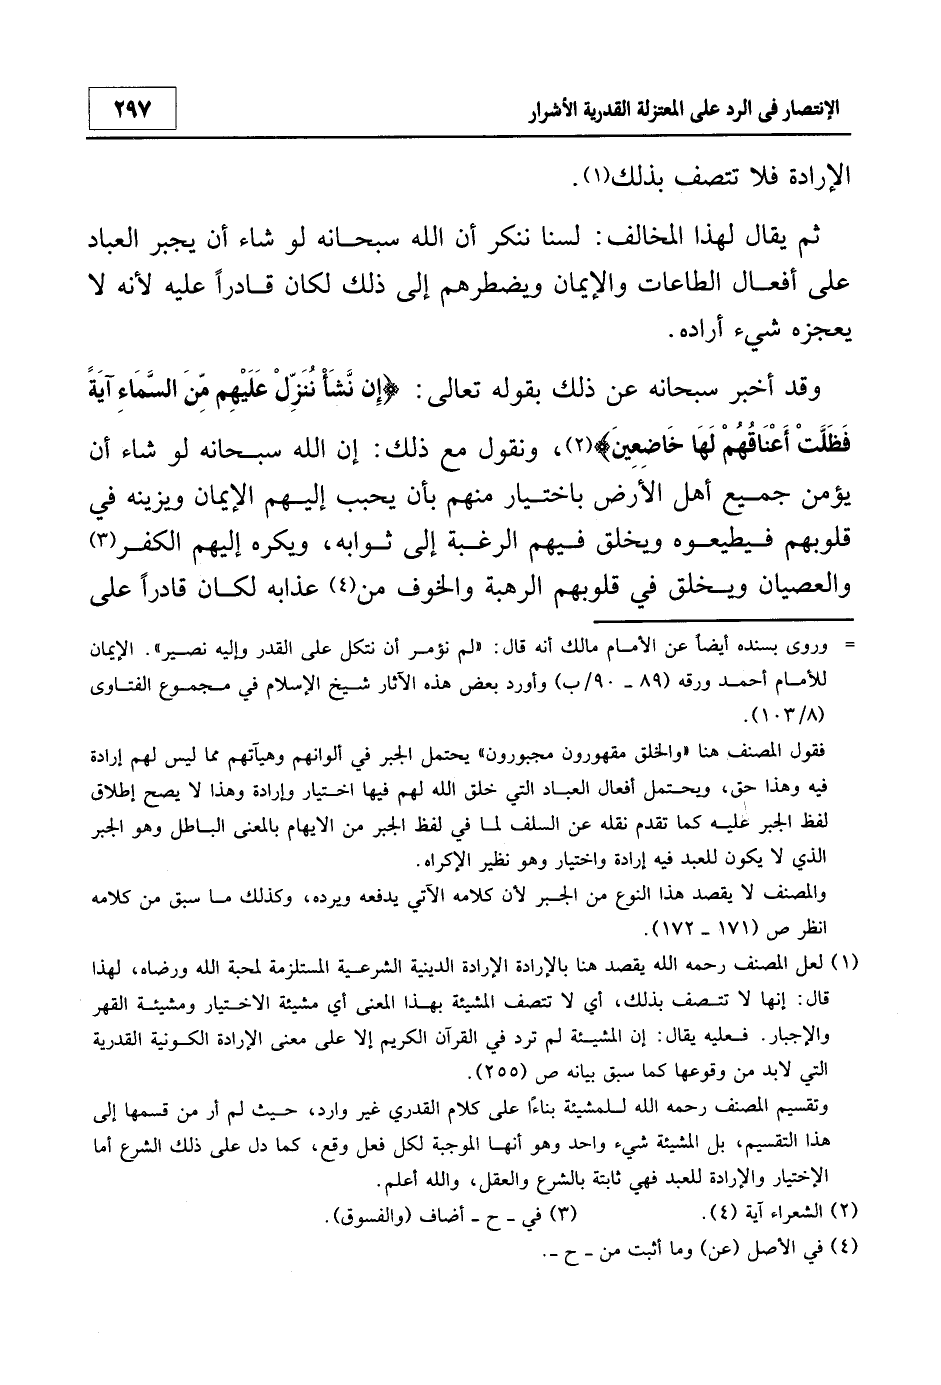 الإنتصار في الرد على المعتزلة القدرية الأشرار
٢٩٧
الإرادة فلا تتصف بذلك(١).
ثم يقال لهذا المخالف: لسنا ننكر أن الله سبحانه لو شاء أن يجبر العباد
على أفعال الطاعات والإيمان ويضطرهم إلى ذلك لكان قادراً عليه لأنه لا
يعجزه شيء أراده.
وقد أخبر سبحانه عن ذلك بقوله تعالى: ﴿إِن نَّشَأْ نُنَزِّلْ عَلَيْهِم مِّنَ السَّمَاءِ آيَةً
فَظَلَّتْ أَعْنَاقُهُمْ لَهَا خَاضِعِينَ﴾(٢)، ونقول مع ذلك: إن الله سبحانه لو شاء أن
يؤمن جميع أهل الأرض باختيار منهم بأن يحبب إليهم الإيمان ويزينه في
قلوبهم فيطيعوه ويخلق فيهم الرغبة إلى ثوابه، ويكره إليهم الكفر(٣)
والعصيان ويخلق في قلوبهم الرهبة والخوف من(٤) عذابه لكان قادراً على
= وروى بسنده أيضاً عن الأمام مالك أنه قال: «لم نؤمر أن نتكل على القدر وإليه نصير». الإيمان
للأمام أحمد ورقه (٨٩ ـ ٩٠/ب) وأورد بعض هذه الآثار شيخ الإسلام في مجموع الفتاوى
(١٠٣/٨).
فقول المصنف هنا «والخلق مقهورون مجبورون» يحتمل الجبر في ألوانهم وهيآتهم مما ليس لهم إرادة
فيه وهذا حق، ويحتمل أفعال العباد التي خلق الله لهم فيها اختيار وإرادة وهذا لا يصح إطلاق
لفظ الجبر عليه كما تقدم نقله عن السلف لما في لفظ الجبر من الايهام بالمعنى الباطل وهو الجبر
الذي لا يكون للعبد فيه إرادة واختيار وهو نظير الإكراه.
والمصنف لا يقصد هذا النوع من الجبر لأن كلامه الآتي يدفعه ويرده، وكذلك ما سبق من كلامه
انظر ص (١٧١ ـ ١٧٢).
(١) لعل المصنف رحمه الله يقصد هنا بالإرادة الإرادة الدينية الشرعية المستلزمة لمحبة الله ورضاه، لهذا
قال: إنها لا تتصف بذلك، أي لا تتصف المشيئة بهذا المعنى أي مشيئة الاختيار ومشيئة القهر
والإجبار. فعليه يقال: إن المشيئة لم ترد في القرآن الكريم إلا على معنى الإرادة الكونية القدرية
التي لابد من وقوعها كما سبق بيانه ص (٢٥٥).
وتقسيم المصنف رحمه الله للمشيئة بناءًا على كلام القدري غير وارد، حيث لم أر من قسمها إلى
هذا التقسيم، بل المشيئة شيء واحد وهو أنها الموجبة لكل فعل وقع، كما دل على ذلك الشرع أما
الإختيار والإرادة للعبد فهي ثابتة بالشرع والعقل، والله أعلم.
(٢) الشعراء آية (٤). (٣) في ـ ح ـ أضاف (والفسوق).
(٤) في الأصل (عن) وما أثبت من ـ ح ـ.